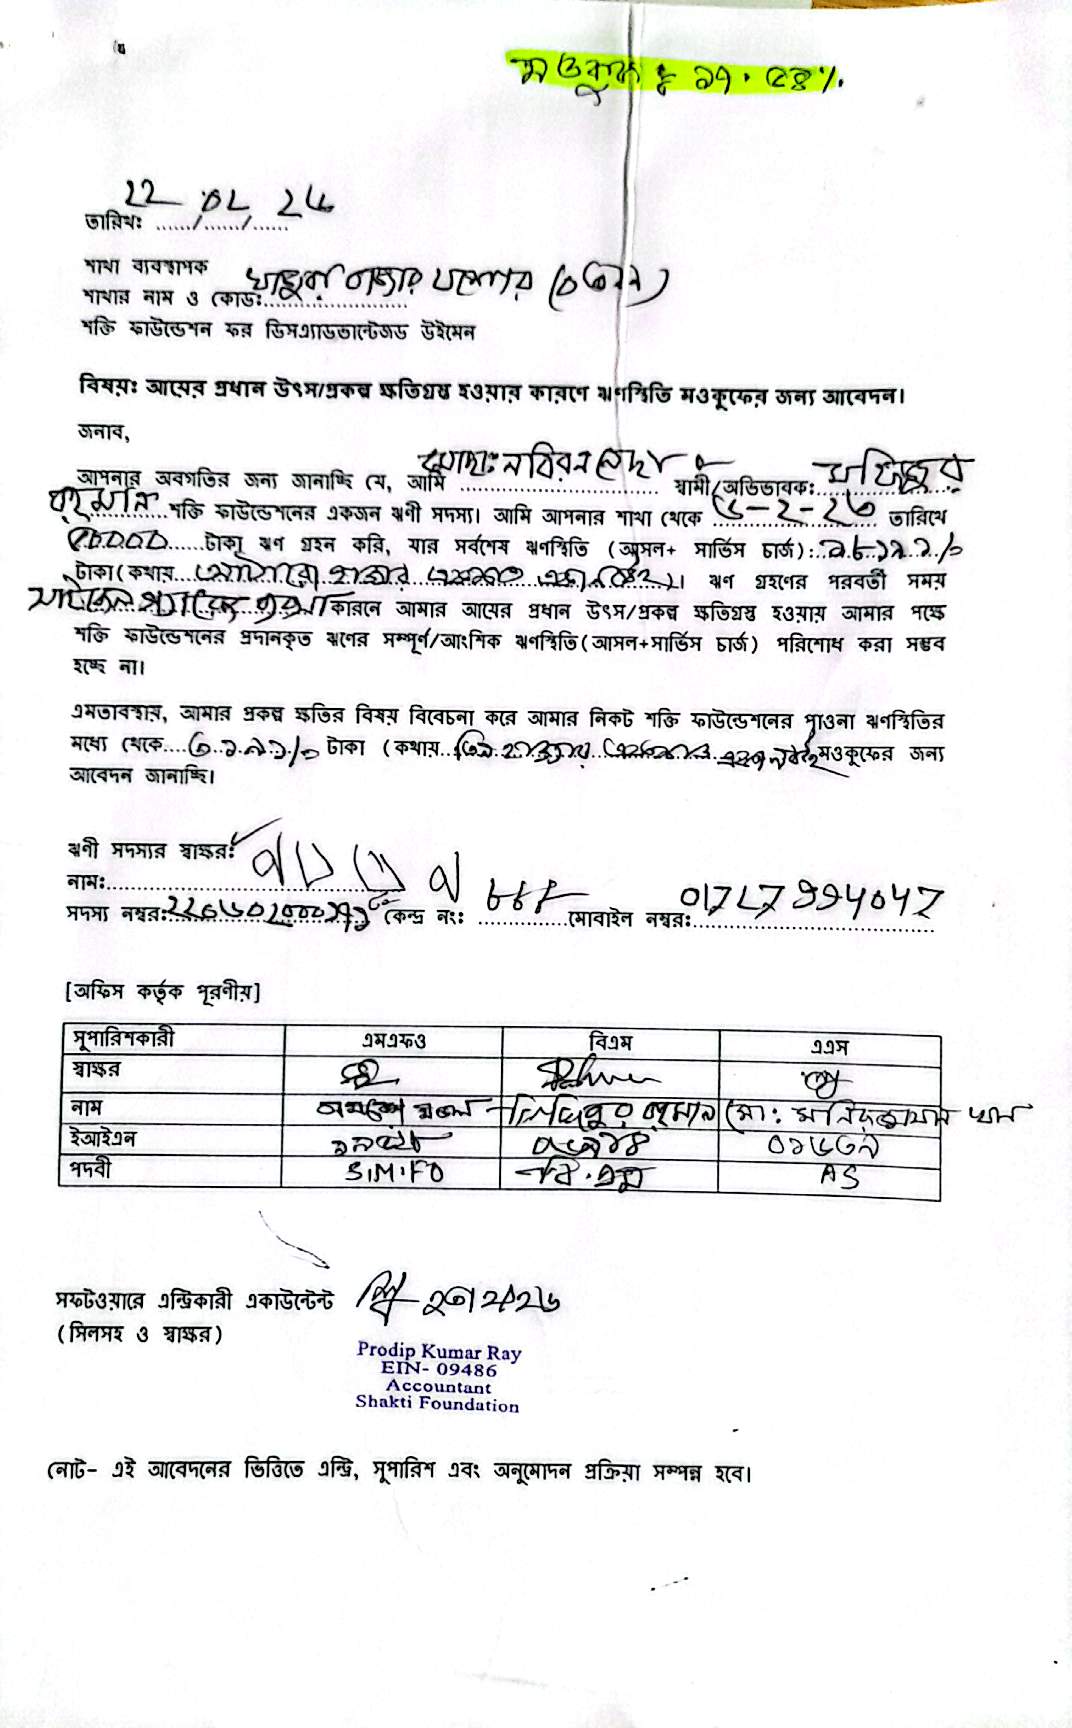 মওকুফ : ১৭.৫৪%
তারিখঃ ....../....../......
শাখা ব্যবস্থাপক
শাখার নাম ও কোডঃ বাজার যশোর
শক্তি ফাউন্ডেশন ফর ডিসএ্যাডভান্টেজড উইমেন
বিষয়ঃ আয়ের প্রধান উৎস/প্রকল্প ক্ষতিগ্রস্ত হওয়ার কারণে ঋণস্থিতি মওকুফের জন্য আবেদন।
জনাব,
আপনার অবগতির জন্য জানাচ্ছি যে, আমি মোছাঃ নবিরন নেছা স্বামী/অভিভাবক: মফিজুর
রহমান শক্তি ফাউন্ডেশনের একজন ঋণী সদস্য। আমি আপনার শাখা থেকে ৬-২-২৩ তারিখে
৫০০০০ টাকা ঋণ গ্রহন করি, যার সর্বশেষ ঋণস্থিতি (আসল+ সার্ভিস চার্জ): ১৮১৯১/০
টাকা(কথায় আঠারো হাজার একশত একানব্বই)। ঋণ গ্রহণের পরবর্তী সময়
কারনে আমার আয়ের প্রধান উৎস/প্রকল্প ক্ষতিগ্রস্ত হওয়ায় আমার পক্ষে
শক্তি ফাউন্ডেশনের প্রদানকৃত ঋণের সম্পূর্ণ/আংশিক ঋণস্থিতি(আসল+সার্ভিস চার্জ) পরিশোধ করা সম্ভব
হচ্ছে না।
এমতাবস্থায়, আমার প্রকল্প ক্ষতির বিষয় বিবেচনা করে আমার নিকট শক্তি ফাউন্ডেশনের পাওনা ঋণস্থিতির
মধ্যে থেকে ৩১৯১/০ টাকা (কথায় তিন হাজার একশত একানব্বই মওকুফের জন্য
আবেদন জানাচ্ছি।
ঋণী সদস্যর স্বাক্ষর:
নাম:
সদস্য নম্বর: কেন্দ্র নং: মোবাইল নম্বর: 01727994047
[অফিস কর্তৃক পূরণীয়]
সুপারিশকারী এমএফও বিএম এএস
স্বাক্ষর
নাম রহমান মো: মনিরুজ্জামান খান
ইআইএন ০১৬৩৯
পদবী S.M.F.O বি.এম AS
সফটওয়ারে এন্ট্রিকারী একাউন্টেন্ট
(সিলসহ ও স্বাক্ষর)
Prodip Kumar Ray
EIN- 09486
Accountant
Shakti Foundation
নোট- এই আবেদনের ভিত্তিতে এন্ট্রি, সুপারিশ এবং অনুমোদন প্রক্রিয়া সম্পন্ন হবে।